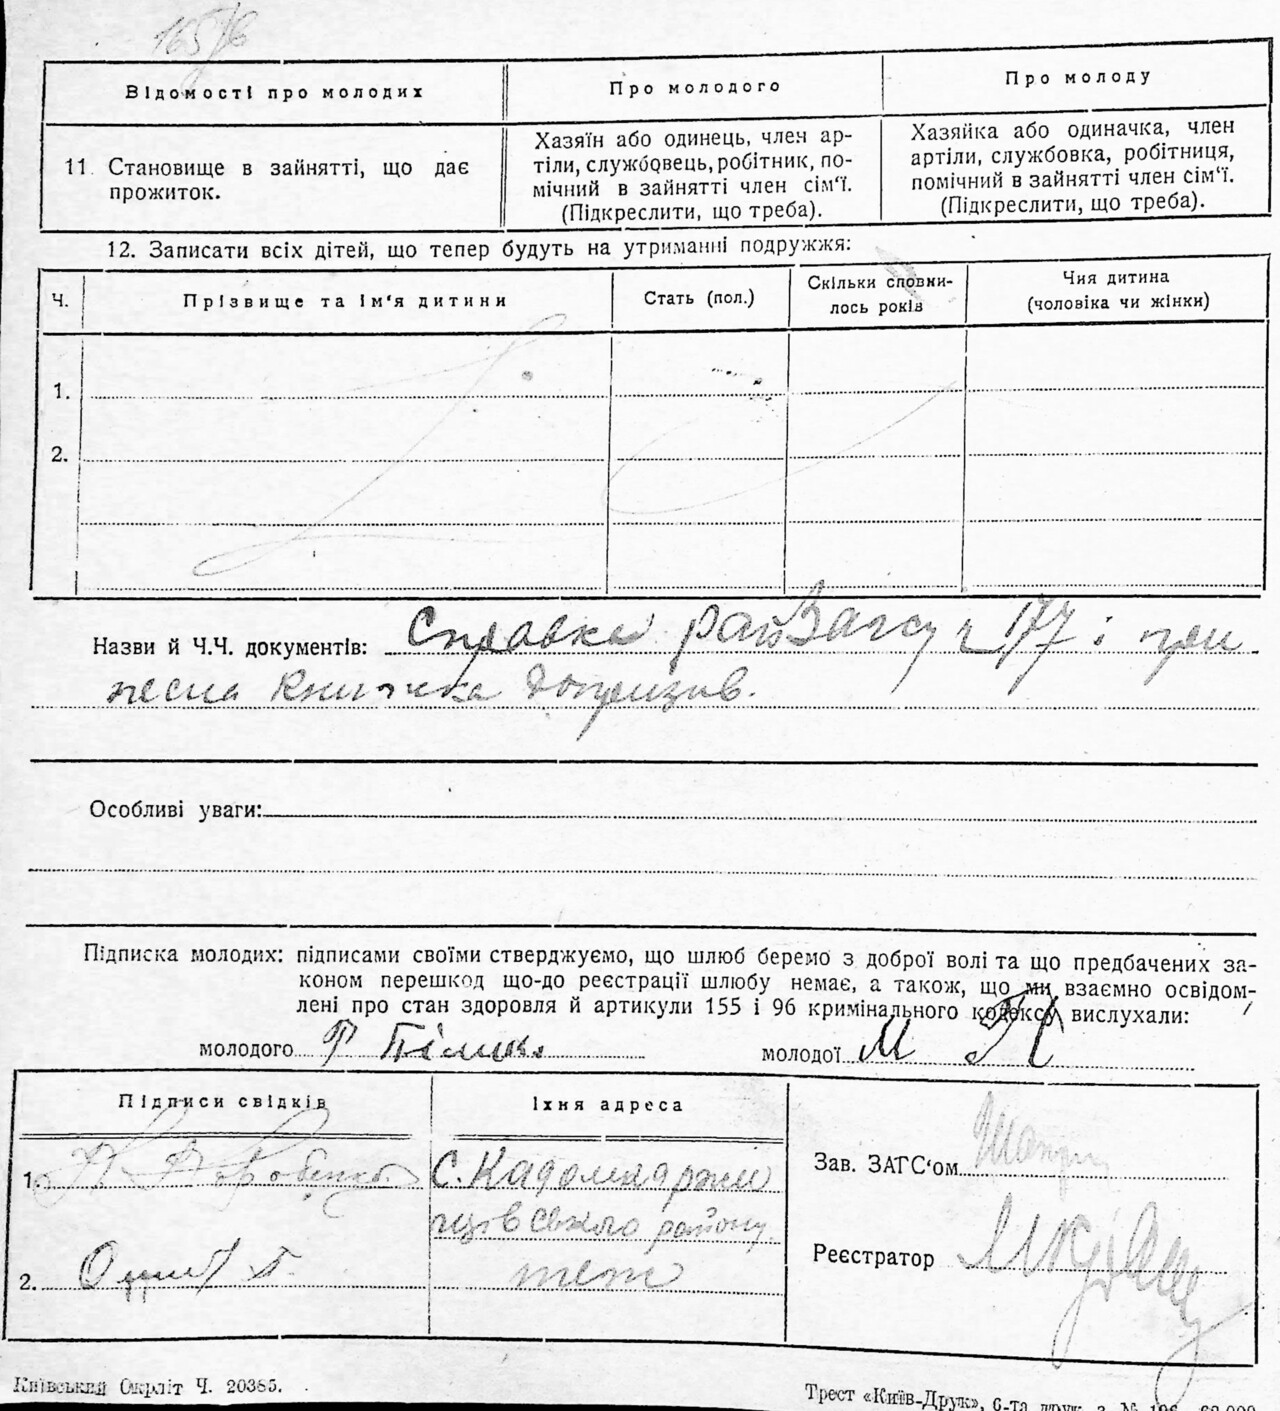 165/в
Відомості про молодих
Про молодого
Про молоду
11. Становище в зайнятті, що дає
прожиток.
Хазяїн або одинець, член ар-
тіли, службовець, робітник, по-
мічний в зайнятті член сім'ї.
(Підкреслити, що треба).
Хазяйка або одиначка, член
артіли, службовка, робітниця,
помічний в зайнятті член сім'ї.
(Підкреслити, що треба).
12. Записати всіх дітей, що тепер будуть на утриманні подружжя:
Ч.
Прізвище та ім'я дитини
Стать (пол.)
Скільки сповни-
лось років
Чия дитина
(чоловіка чи жінки)
1.
2.
Назви й Ч.Ч. документів: Справка райЗагсу ч 177 і при
песна книжка допризив.
Особливі уваги:
Підписка молодих: підписами своїми стверджуємо, що шлюб беремо з доброї волі та що предбачених за-
коном перешкод що-до реєстрації шлюбу немає, а також, що ми взаємно освідом-
лені про стан здоровля й артикули 155 і 96 кримінального кодексу вислухали:
молодого
молодої М
Підписи свідків
Їхня адреса
1.
С. Кадомка
району
2.
теж
Зав. ЗАГС'ом
Реєстратор
Київський Окрліт Ч. 20385.
Трест «Київ-Друк»,